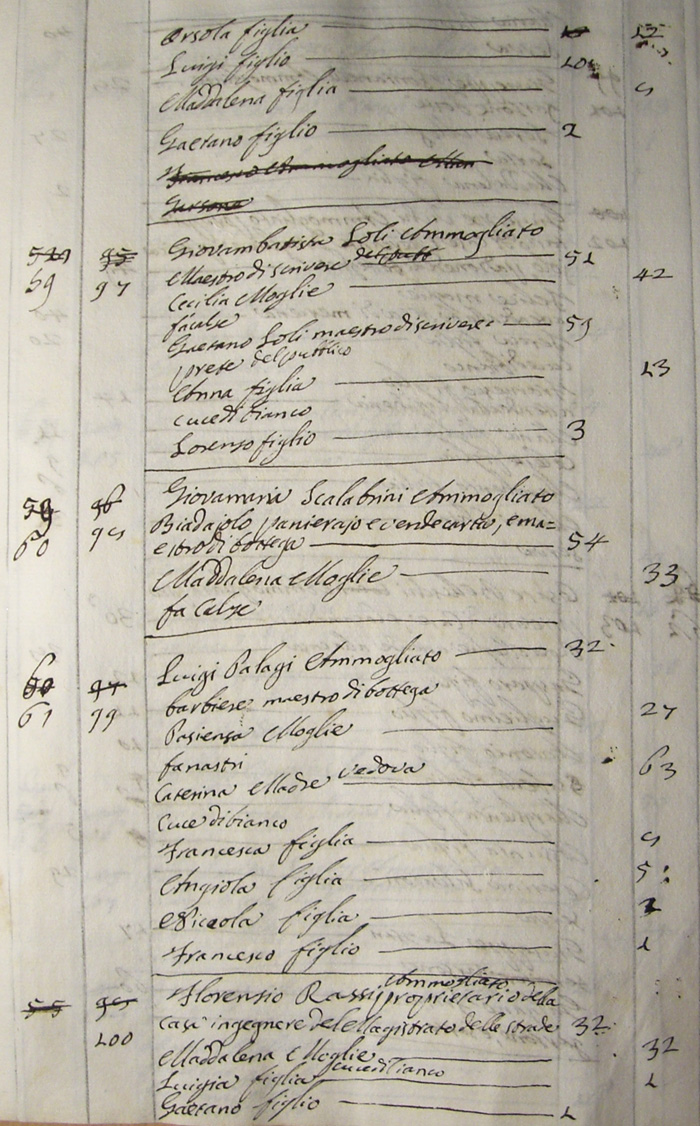 Orsola figlia 12
Luigi figlio 10
Maddalena figlia 9
Gaetano figlio 2
Francesco Ammogliato
Garzone
Giovambatista Loli Ammogliato
59 97 Maestro di scrivere 51
Cecilia Moglie 42
fa calze
Gaetano Loli maestro di scrivere 59
prete del pubblico
Anna figlia 13
cuce di bianco
Lorenzo figlio 3
59 96 Giovamaria Scalabrini Ammogliato
60 98 Biadajolo, panierajo e vende carta, e ma=
estro di bottega 54
Maddalena Moglie 33
fa Calze
Luigi Palagi Ammogliato 32
60 97 barbiere maestro di bottega
61 99 Pasiensa Moglie 27
fa nastri
Caterina Madre vedova 63
Cuce di bianco
Francesca figlia 9
Angiola figlia 5
Niccola figlia 2
Francesco figlio 1
Ammogliato
Florensio Rassi, proprietario della
100 casa ingegnere del Magistrato delle strade 32
Maddalena Moglie 32
cuce di bianco
Luigia figlia 1
Gaetano figlio 1